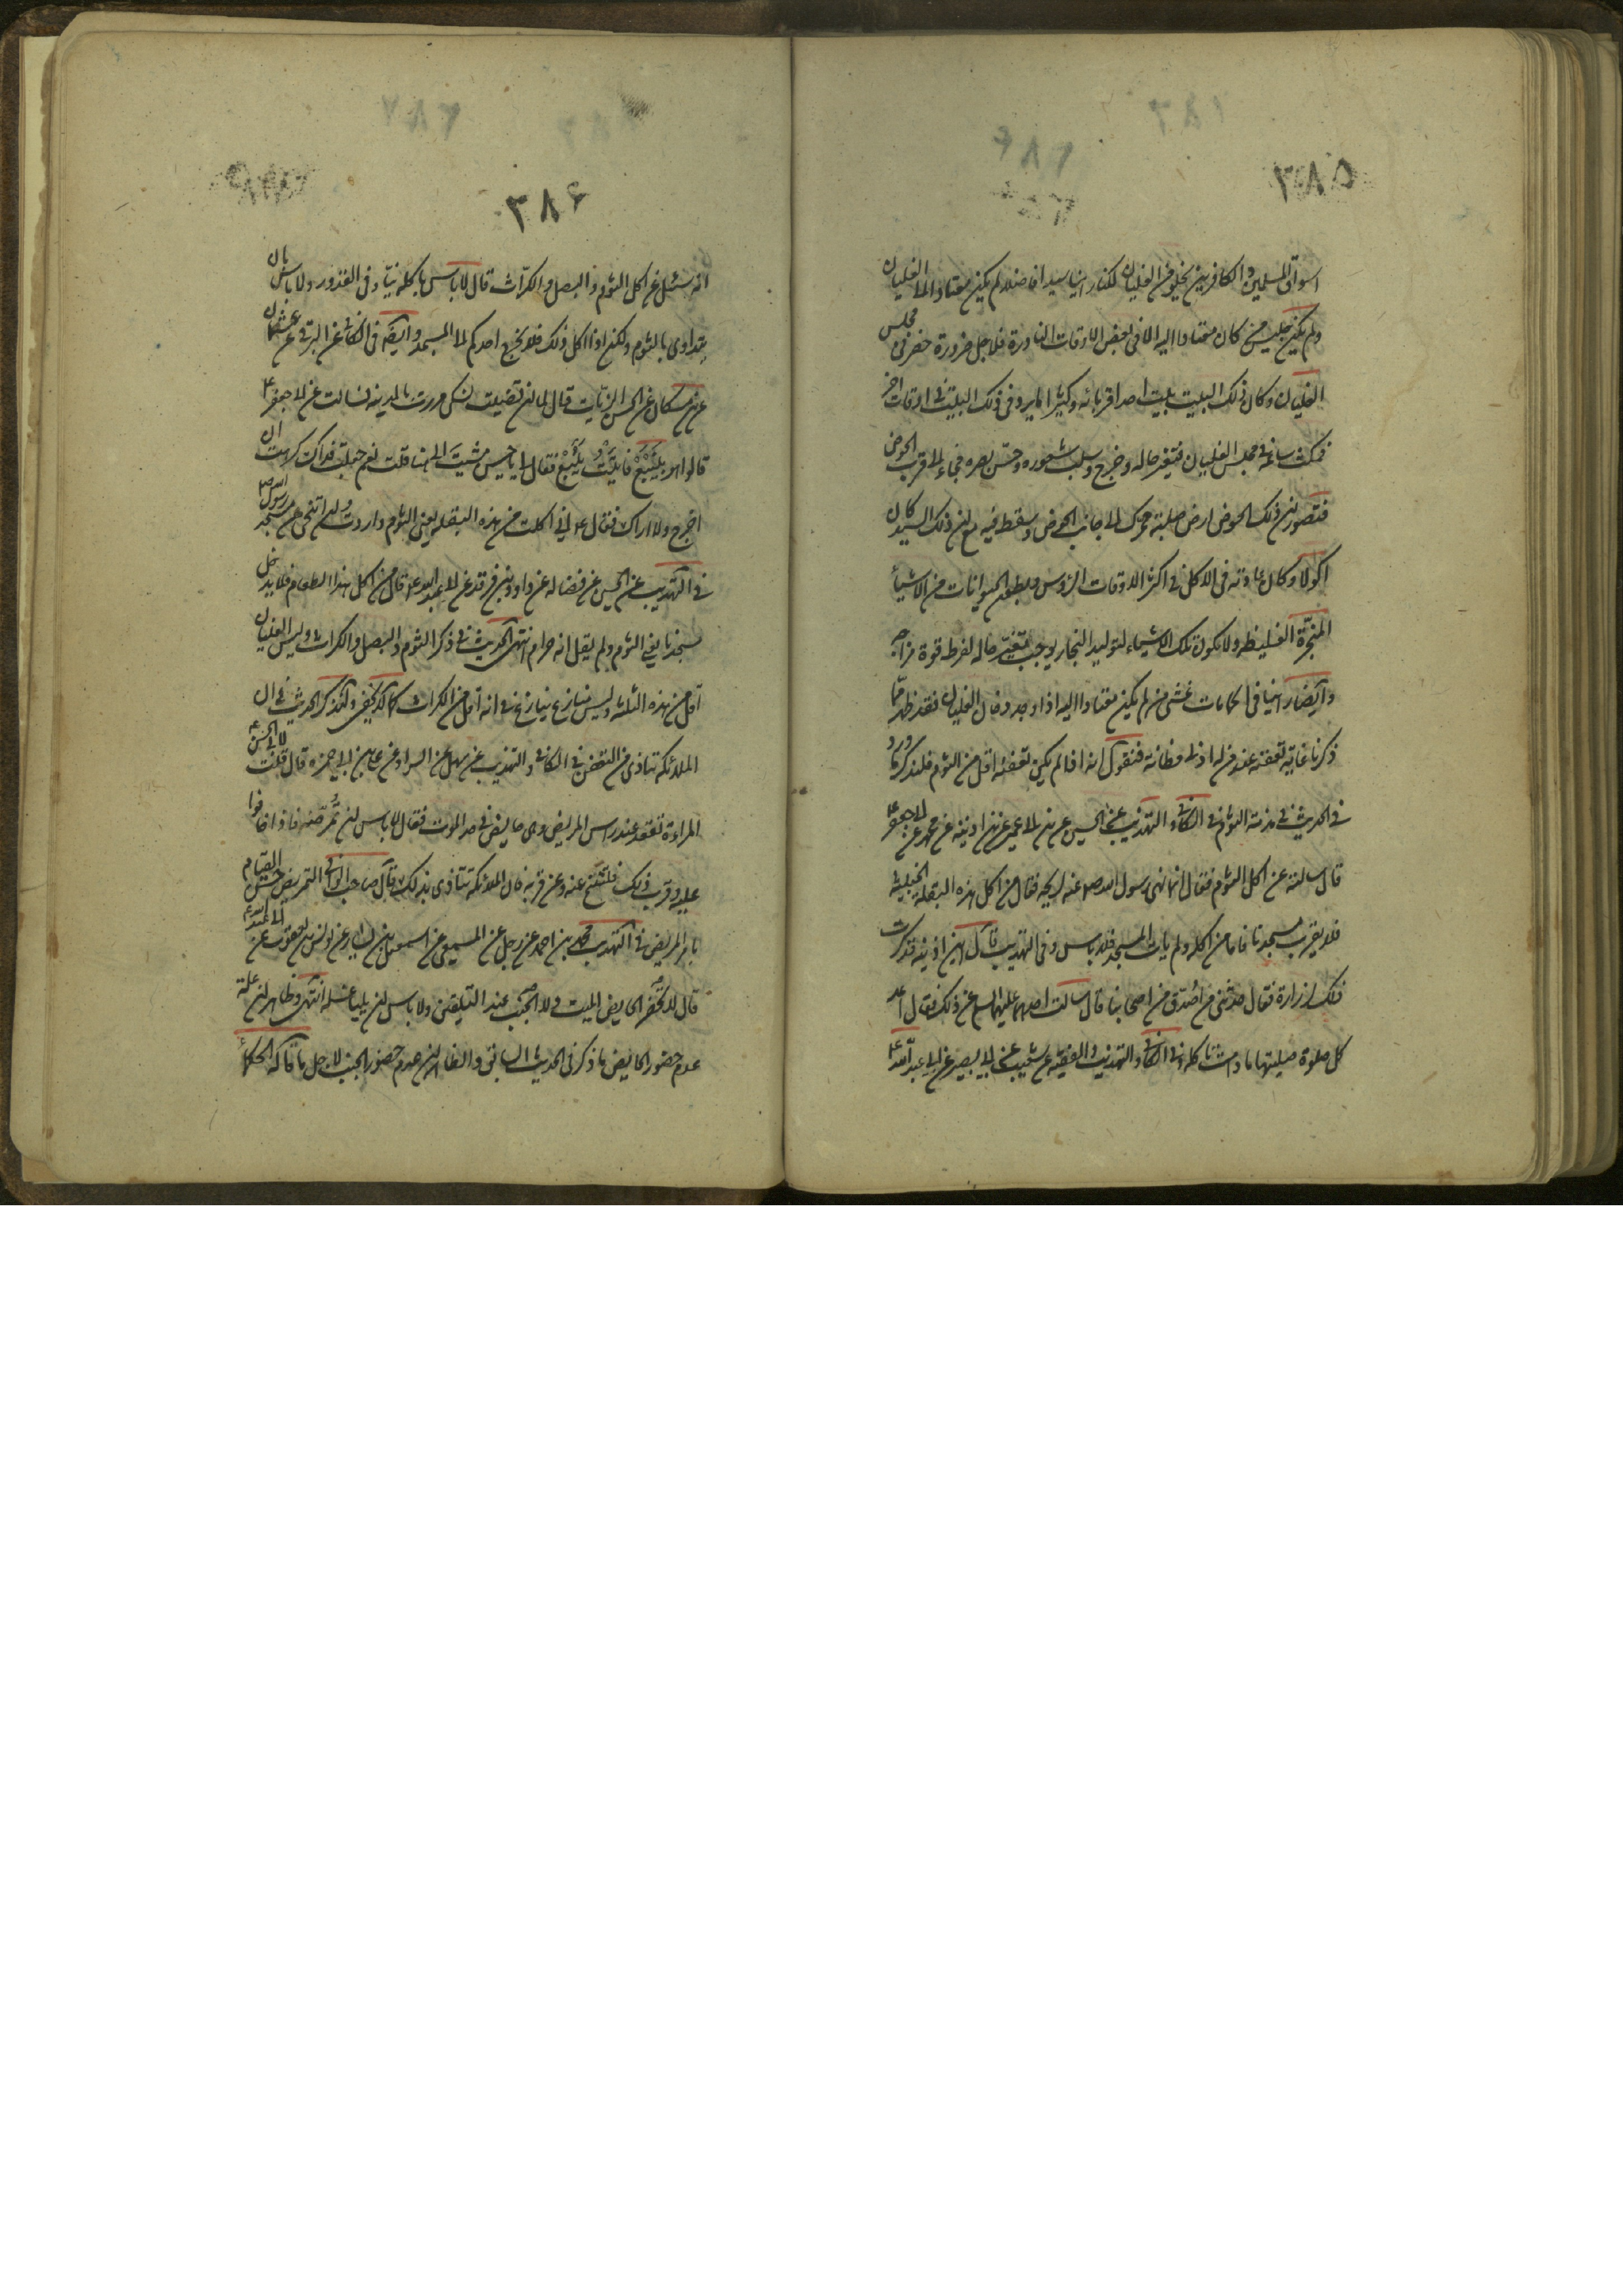 ٣٨٥
اسواق المسلمين والكافرين يخلو من الغليان لكنا راينا سيدا فاضلا لم يكن معتادا الى الغليان
ولم يكن جليس من كان معتادا اليه الا فى بعض الاوقات النادرة فلاجل ضرورة حضر فى مجلس
الغليان وكان ذلك البيت بيت احد اقربائه وكثيرا ما يرد فى ذلك البيت فى اوقات اخر
فمكث ساعة فى مجلس الغليان فتغير حاله وخرج وسلب شعوره وحس بصره فجاء الى قرب الحوض
فتصور ان ذلك الحوض ارض صلبة تحرك الى جانب الحوض وسقط فيه مع ان ذلك السيد كان
اكولا وكان عادته فى الاكل فى اكثر الاوقات الرؤس وبطون الحيوانات من الاشياء
المبخرة الغليظة ولا يكون تلك الاشياء لتوليد البخار يوجب تغير حاله لفرط قوة مزاجه
وايضا راينا فى الحمامات غشى من لم يكن معتادا اليه اذا وجد دخان الغليان فقد ظهر مما
ذكرنا غاية تعفنه عند من له ادنى فطانة فنقول انه اذا لم يكن تعفنه اقل من الثوم فلنذكر ما ورد
فى الحديث فى مذمة الثوم فى الكافى والتهذيب عن الحسين عن ابن ابى عمير عن ابن اذينه عن محمد عن ابى جعفر ع
قال سالته عن اكل الثوم فقال انما نهى رسول الله ص عنه لريحه فقال من اكل هذه البقلة الخبيثة
فلا يقرب مسجدنا فاما من اكله ولم يات المسجد فلا باس وفى التهذيب قال ابن اذينه فذكرت
ذلك لزرارة فقال حدثنى من اصدق من اصحابنا قال سالت احدهما عليهما السلم عن ذلك فقال اعد
كل صلوة صليتها ما دمت تاكله وفى الكافى والتهذيب والفقيه عن شعيب عن ابى بصير عن ابى عبد الله ع
٣٨۶
انه سئل عن اكل الثوم والبصل والكراث قال لا باس باكله نيا وفى القدور ولا باس بان
يتداوى بالثوم ولكن اذا اكل ذلك فلا يخرج احدكم الى المسجد وايضا فى الكافى عن البرقى عن عثمان
عن ابن مسكان عن الحسن الزيات قال لما ان قضيت نسكى مررت بالمدينه فسالت عن ابى جعفر ع
قالوا هو بينبع فاتيت ينبع فقال لى يا حسن مشيت الى هنا قلت نعم جعلت فداك كرهت ان
اخرج ولا اراك فقال ع انى اكلت من هذه البقلة يعنى الثوم واردت ان اتنحى عن مسجد رسول الله ص
فى التهذيب عن الحسين عن فضاله عن داود بن فرقد عن ابى عبد الله ع قال من اكل هذا الطعام فلا يدخل
مسجدنا يعنى الثوم ولم يقل انه حرام انتهى الحديث فى ذكر الثوم والبصل والكراث وليس الغليان
اقل من هذه الثلثة وليس منازع ينازع فى انه اقل من الكراث كما لا يخفى ولنذكر الحديث فى ان
الملائكة تتاذى من التعفن فى الكافى والتهذيب عن سهل عن السراد عن على بن ابى حمزه قال قلت لابى الحسن ع
المراءة تقعد عند راس المريض وهى حايض فى حد الموت فقال لا باس ان تمرضه فاذا خافوا
عليه وقرب ذلك فلتنح عنه وعن قربه فان الملائكة تتاذى بذلك قال صاحب الوافى التمريض حسن القيام
بامر المريض فى التهذيب محمد بن احمد عن رجل عن المسمعى عن اسمعيل بن يسار عن يونس بن يعقوب عن ابى عبد الله ع
قال لا تحضر الحايض الميت ولا الجنب عند التلقين ولا باس ان يليا غسله انتهى وظاهر ان علة
عدم حضور الحايض ما ذكر فى الحديث السابق والظاهر ان عدم حضور الجنب لاجل ما قاله الحكماء